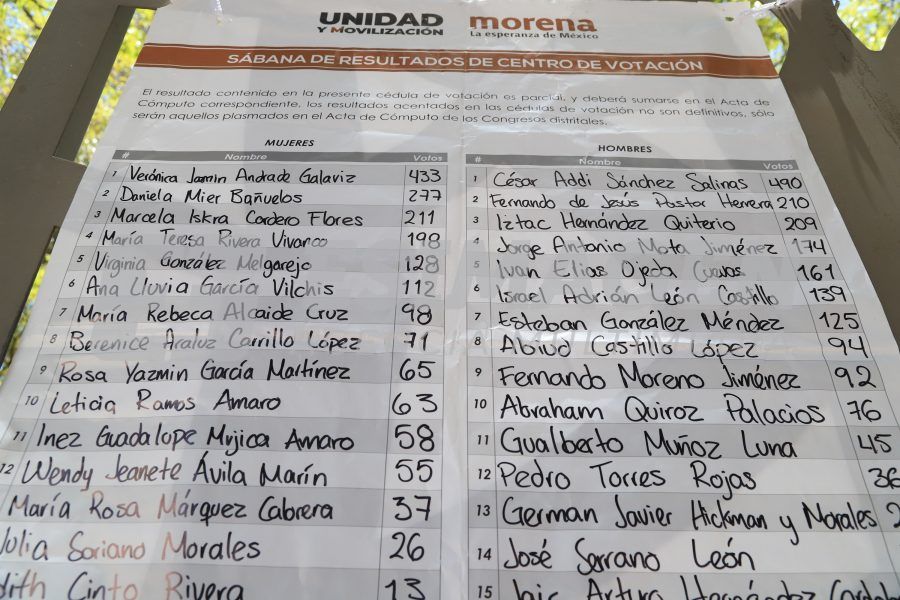 UNIDAD
Y MOVILIZACIÓN
morena
La esperanza de México
SÁBANA DE RESULTADOS DE CENTRO DE VOTACIÓN
El resultado contenido en la presente cédula de votación es parcial, y deberá sumarse en el Acta de
Cómputo correspondiente, los resultados acentados en las cédulas de votación no son definitivos, sólo
serán aquellos plasmados en el Acta de Cómputo de los Congresos distritales.
MUJERES
# Nombre Votos
1 Verónica Jamin Andrade Galaviz 433
2 Daniela Mier Bañuelos 277
3 Marcela Iskra Cordero Flores 211
4 María Teresa Rivera Vivanco 198
5 Virginia González Melgarejo 128
6 Ana Lluvia García Vilchis 112
7 María Rebeca Alcaide Cruz 98
8 Berenice Araluz Carrillo López 71
9 Rosa Yazmin García Martínez 65
10 Leticia Ramos Amaro 63
11 Inez Guadalope Mujica Amaro 58
12 Wendy Jeanete Ávila Marín 55
María Rosa Márquez Cabrera 37
Julia Soriano Morales 26
Cinto Rivera 13
HOMBRES
# Nombre Votos
1 César Addi Sánchez Salinas 490
2 Fernando de Jesús Pastor Herrera 210
3 Iztac Hernández Quiterio 209
4 Jorge Antonio Mota Jiménez 174
5 Ivan Elias Ojeda Cuevas 161
6 Israel Adrián León Castillo 139
7 Esteban González Méndez 125
8 Abiud Castillo López 94
9 Fernando Moreno Jiménez 92
10 Abraham Quiroz Palacios 76
11 Gualberto Muñoz Luna 45
12 Pedro Torres Rojas 36
13 German Javier Hickman y Morales
14 José Serrano León
15 Arturo Hernández